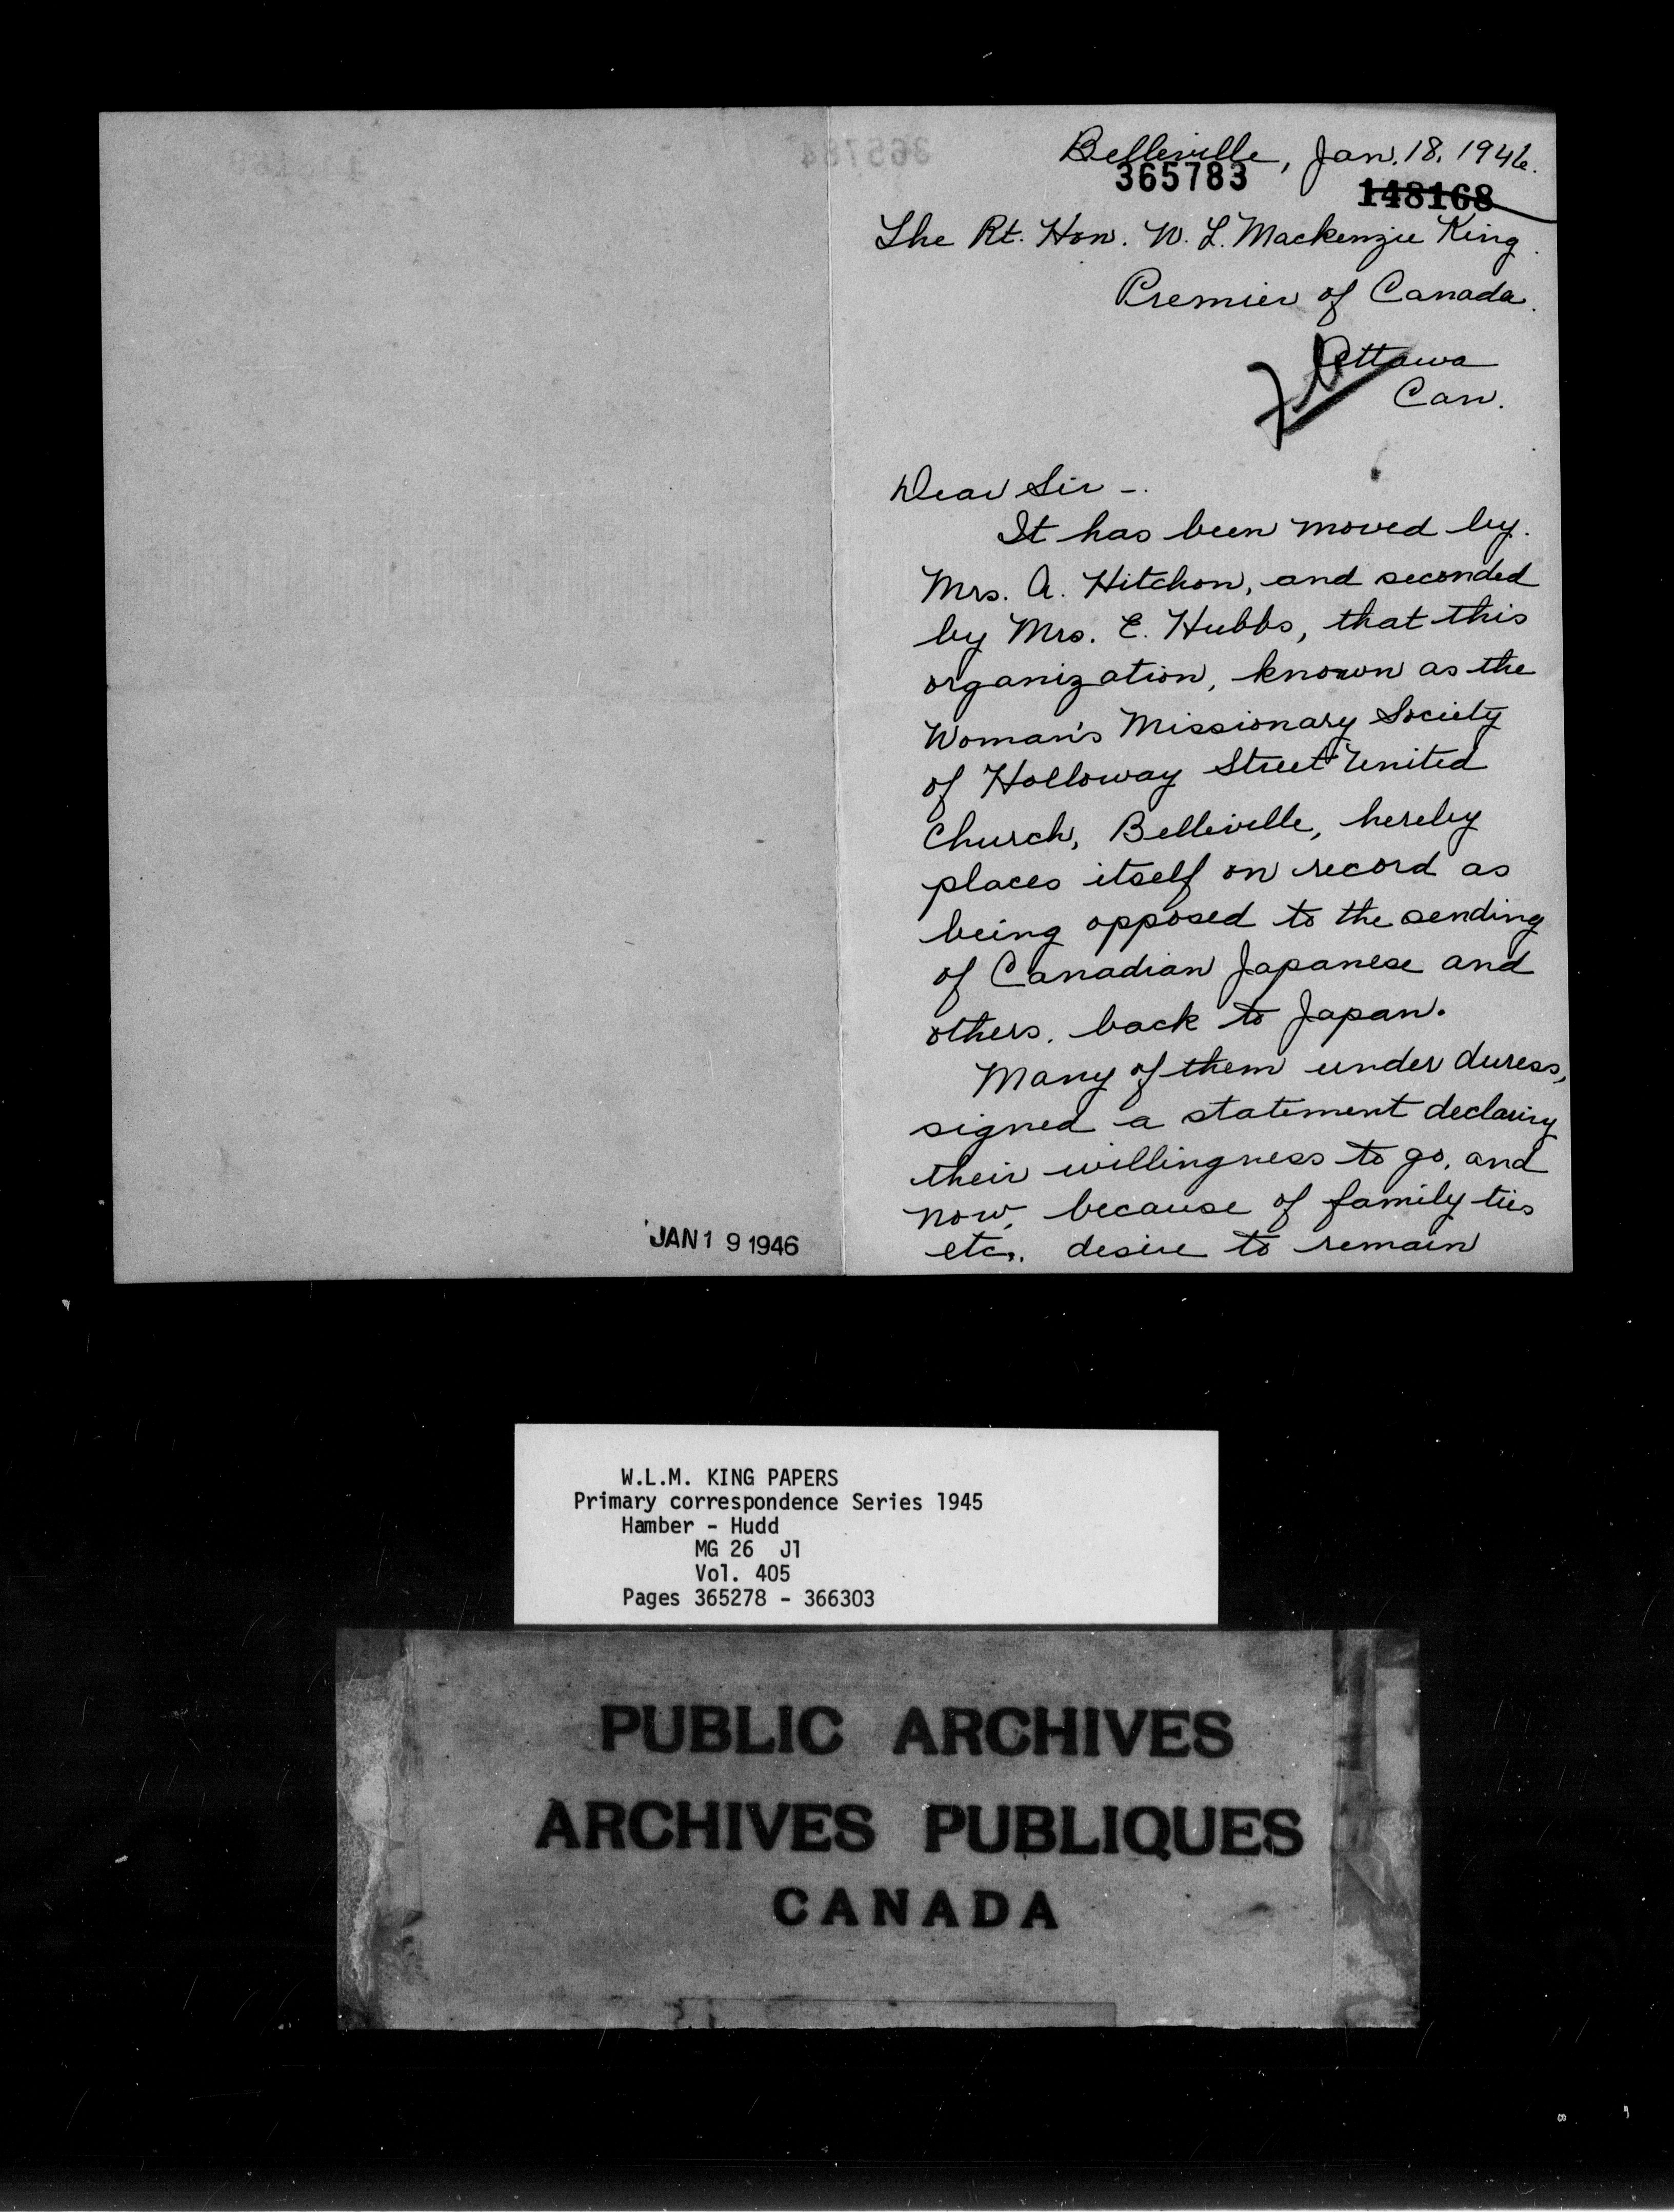 Belleville, Jan. 18. 1946.
365783
148168
The Rt. Hon. W. L. Mackenzie King.
Premier of Canada.
Ottawa
Can.
Dear Sir -.
It has been moved by.
Mrs. A. Hitchon, and seconded
by Mrs. E. Hubbs, that this
organization, known as the
Woman's Missionary Society
of Holloway Street United
Church, Belleville, hereby
places itself on record as
being opposed to the sending
of Canadian Japanese and
others, back to Japan.
Many of them under duress,
signed a statement declaring
their willingness to go, and
now, because of family ties
etc., desire to remain
JAN 19 1946
W.L.M. KING PAPERS
Primary correspondence Series 1945
Hamber - Hudd
MG 26 J1
Vol. 405
Pages 365278 - 366303
PUBLIC ARCHIVES
ARCHIVES PUBLIQUES
CANADA